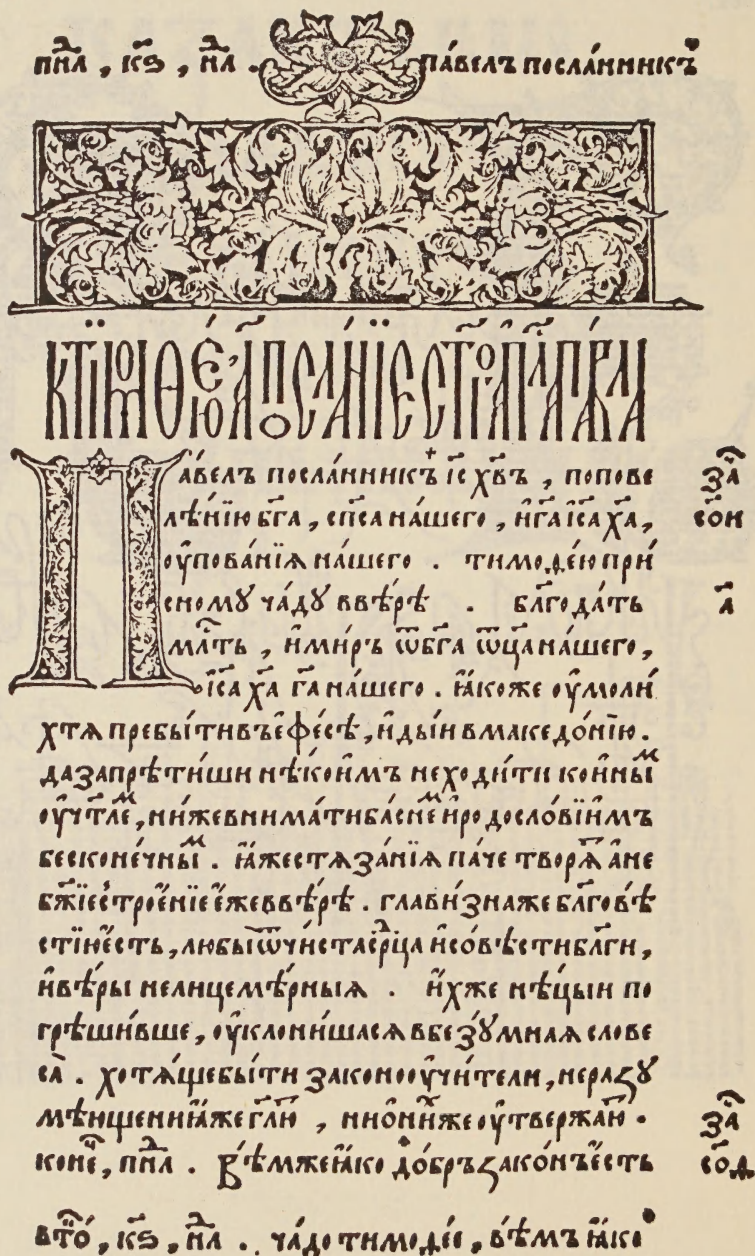 пн҃л , к҃ѕ , н҃л . па́велъ посла́нникъ
к тїмоѳе́ю а҃ посла́нїе ст҃го а҃пла па́вла
Па́велъ посла́нникъ і҃с хв҃ъ , попове
лѣ́нїю бг҃а , сп҃са на́шего , и҆ г҃а і҆с҃а х҃а ,
оу҆пова́нїѧ на́шего . тимоѳе́ю при́
сному ча́дꙋ ввѣ́рѣ . блг҃ода́ть
мл҃ть , и҆ми́ръ ѿбг҃а ѿц҃а на́шего ,
і҆с҃а х҃а г҃а на́шего . ꙗ҆́коже оу҆моли́
хтѧ пребы́тивъе҆фе́сѣ , и҆ды́и вмакедо́нїю .
дазапрѣти́ши нѣ́кои҆мъ неходи́ти кои҆ны́ᷟ
оу҆чт҃леᷟ , ни́жевнима́тиба́снеᷟ и҆родосло́вїи҆мъ
бесконе́чныᷟ . ꙗ҆́жестѧза́нїѧ па́че творѧ҃ ане
бж҃їестрое́нїе е҆́жеввѣ́рѣ . глави́знаже блг҃овѣ
сти́ю е҆́сть , любы̀ ѿчи́ста ср҃ца и҆со́вѣстиблг҃и ,
и҆вѣ́ры нелицемѣ́рныѧ . и҆́хже нѣ́цыи по
грѣши́вше , оу҆клони́шасѧ вбезꙋ́мнаѧ слове
са̀ . хотѧ́щебы́ти законооу҆чи́тели , неразꙋ
мѣ́ющени ꙗ҆́же гл҃ю , нио҆ни́хже оу҆твержа́ю .
коне҃ , пн҃л . Вѣ́мже ꙗ҆́ко до́бръ зако́нъ е҆́сть
вто҃ , к҃ѕ , н҃л . ча́до тимоѳе́е , вѣ́мъ ꙗ҆́ко
за҃
со҃и
а҃
за҃